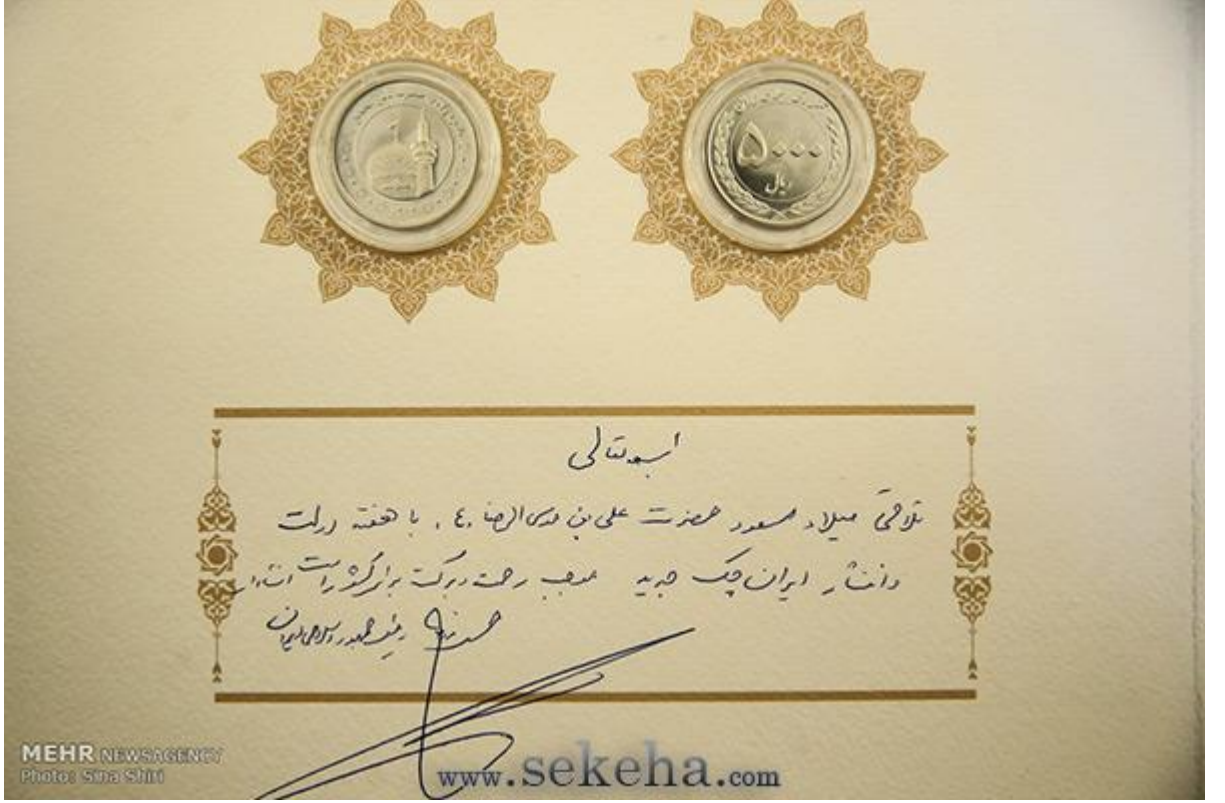 ۵۰۰۰
ریال
بسمه تعالی
تلاقی میلاد مسعود حضرت علی بن موسی الرضا (ع) با هفته دولت
وانتشار ایران چک جدید موجب رحمت و برکت برای کشور است انشاءا...
حسن روحانی رئیس جمهوری اسلامی ایران
MEHR NEWSAGENCY
Photo: Sina Shiri
www.sekeha.com